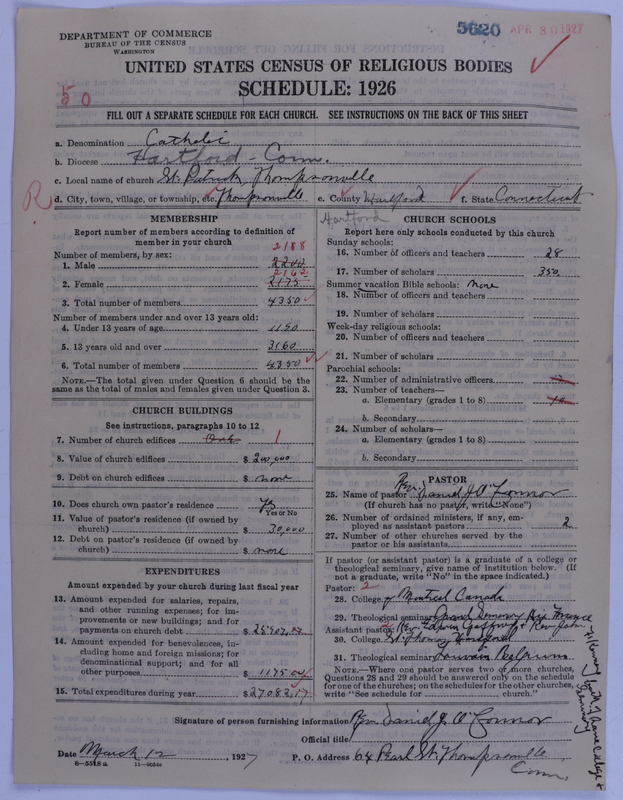 DEPARTMENT OF COMMERCE
BUREAU OF THE CENSUS
WASHINGTON
5620 APR 30 1927
UNITED STATES CENSUS OF RELIGIOUS BODIES
SCHEDULE: 1926
50
FILL OUT A SEPARATE SCHEDULE FOR EACH CHURCH. SEE INSTRUCTIONS ON THE BACK OF THIS SHEET
a. Denomination Catholic
b. Diocese Hartford - Conn.
c. Local name of church St. Patrick, Thompsonville
R d. City, town, village, or township, etc. Thompsonville e. County Hartford f. State Connecticut
Hartford
MEMBERSHIP
Report number of members according to definition of
member in your church
Number of members, by sex:
2188
1. Male 2200
2162
2. Female 2175
3. Total number of members 4350
Number of members under and over 13 years old:
4. Under 13 years of age 1190
5. 13 years old and over 3160
6. Total number of members 4350
NOTE.—The total given under Question 6 should be the
same as the total of males and females given under Question 3.
CHURCH BUILDINGS
See instructions, paragraphs 10 to 12
7. Number of church edifices 1
8. Value of church edifices $ 200,000
9. Debt on church edifices $ none
10. Does church own pastor's residence Yes
Yes or No
11. Value of pastor's residence (if owned by
church) $ 30,000
12. Debt on pastor's residence (if owned by
church) $ none
EXPENDITURES
Amount expended by your church during last fiscal year
13. Amount expended for salaries, repairs,
and other running expenses; for im-
provements or new buildings; and for
payments on church debt $
14. Amount expended for benevolences, in-
cluding home and foreign missions; for
denominational support; and for all
other purposes $ 1175.00
15. Total expenditures during year $ 27082.17
CHURCH SCHOOLS
Report here only schools conducted by this church
Sunday schools:
16. Number of officers and teachers 28
17. Number of scholars 350
Summer vacation Bible schools: None
18. Number of officers and teachers
19. Number of scholars
Week-day religious schools:
20. Number of officers and teachers
21. Number of scholars
Parochial schools:
22. Number of administrative officers
23. Number of teachers—
a. Elementary (grades 1 to 8)
b. Secondary
24. Number of scholars—
a. Elementary (grades 1 to 8)
b. Secondary
PASTOR
25. Name of pastor Rev. Daniel J. O'Connor
(If church has no pastor, write "None")
26. Number of ordained ministers, if any, em-
ployed as assistant pastors 2
27. Number of other churches served by the
pastor or his assistants
If pastor (or assistant pastor) is a graduate of a college or
theological seminary, give name of institution below. (If
not a graduate, write "No" in the space indicated.)
Pastor: 2
28. College of Montreal Canada
29. Theological seminary Grand Seminary Aix France
Assistant pastor: Rev. Edwin
30. College St. Thomas
31. Theological seminary Louvain Belgium
NOTE.—Where one pastor serves two or more churches,
Questions 28 and 29 should be answered only on the schedule
for one of the churches; on the schedules for the other churches,
write "See schedule for church."
Signature of person furnishing information Rev. Daniel J. O'Connor
Official title
Date March 12, 1927 P. O. Address 64 Pearl St. Thompsonville
Conn.
8-5518 a